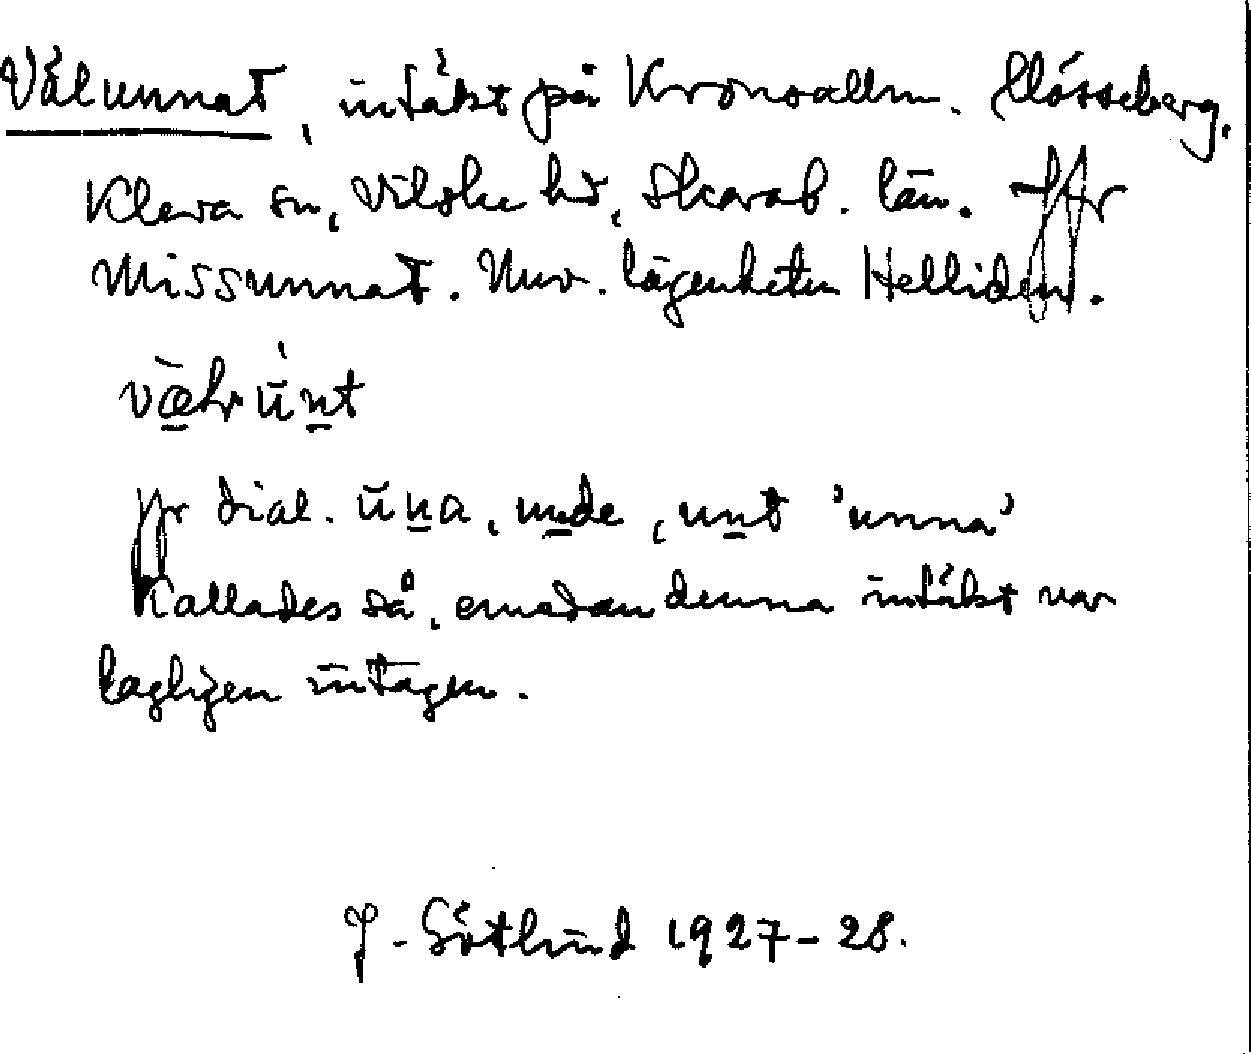 Välunnat, intäkt på Kronoallm. Mösseberg,
Kleva sn, Vilske hd, Skarab. län. Jfr
Missunnat. Nuv. lägenheten Helliden.
jfr dial. ŭna, unde, unt 'unna'
Kallades så, emedan denna intäkt var
lagligen intagen.
J. Götlind 1927-28.